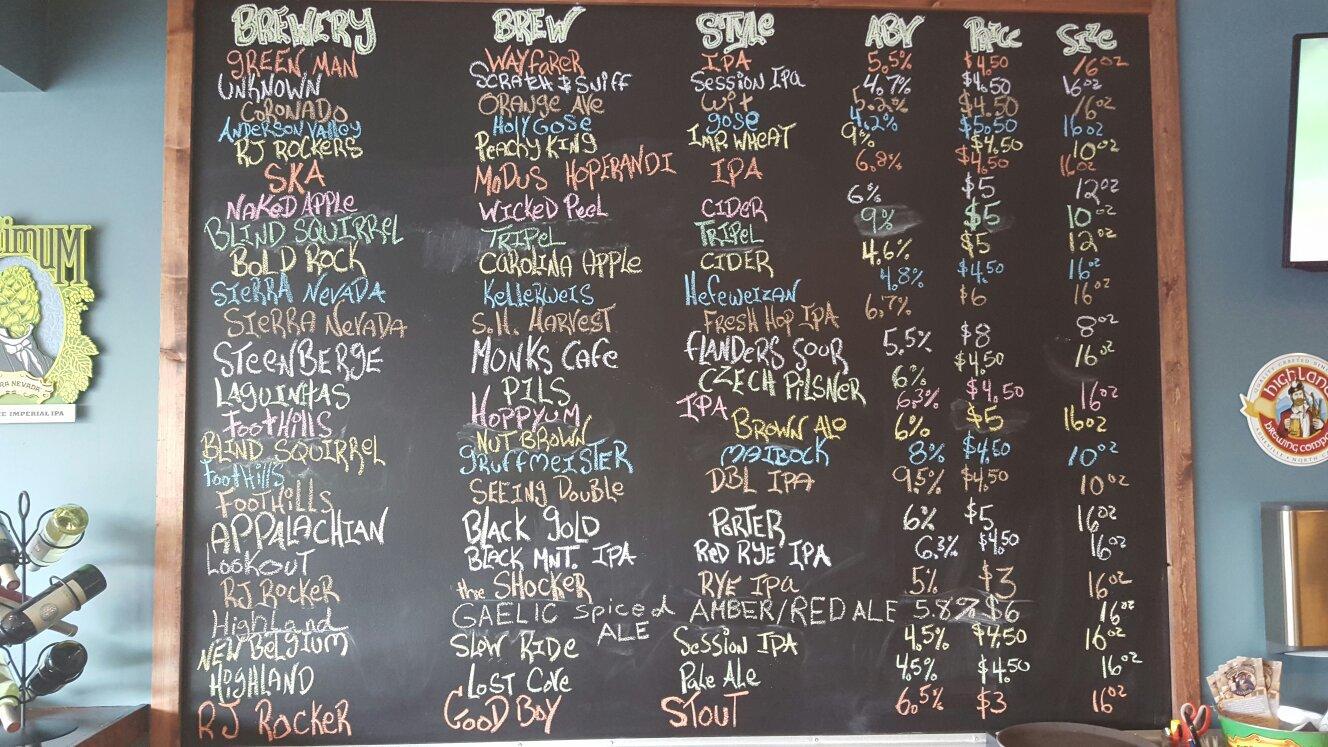 BREWERY BREW STYLE ABV PRICE SIZE
GREEN MAN WAYFARER IPA 5.5% $4.50 16oz
UNKNOWN SCRATCH & SNIFF SESSION IPA 4.7% $4.50 16oz
CORONADO ORANGE AVE WIT 5.2% $4.50 16oz
ANDERSON VALLEY HOLY GOSE GOSE 4.2% $5.50 16oz
RJ ROCKERS PEACHY KING IMP. WHEAT 9% $4.50 10oz
SKA MODUS HOPERANDI IPA 6.8% $4.50 16oz
NAKED APPLE WICKED PEEL CIDER 6% $5 12oz
BLIND SQUIRREL TRIPEL TRIPEL 9% $5 10oz
BOLD ROCK CAROLINA APPLE CIDER 4.6% $5 12oz
SIERRA NEVADA KELLERWEIS HEFEWEIZAN 4.8% $4.50 16oz
SIERRA NEVADA S.H. HARVEST FRESH HOP IPA 6.7% $6 16oz
STEENBERGE MONKS CAFE FLANDERS SOUR 5.5% $8 8oz
LAGUINTAS PILS CZECH PILSNER 6% $4.50 16oz
FOOTHILLS HOPPYUM IPA 6.3% $4.50 16oz
BLIND SQUIRREL NUT BROWN BROWN ALE 6% $5 16oz
FOOTHILLS GRUFFMEISTER MAIBOCK 8% $4.50 10oz
FOOTHILLS SEEING DOUBLE DBL IPA 9.5% $4.50 10oz
APPALACHIAN BLACK GOLD PORTER 6% $5 16oz
LOOKOUT BLACK MNT. IPA RED RYE IPA 6.3% $4.50 16oz
RJ ROCKER the SHOCKER RYE IPA 5% $3 16oz
HIGHLAND GAELIC spiced ALE AMBER/RED ALE 5.8% $6 16oz
NEW BELGIUM SLOW RIDE SESSION IPA 4.5% $4.50 16oz
HIGHLAND LOST COVE PALE ALE 4.5% $4.50 16oz
RJ ROCKER GOOD BOY STOUT 6.5% $3 16oz